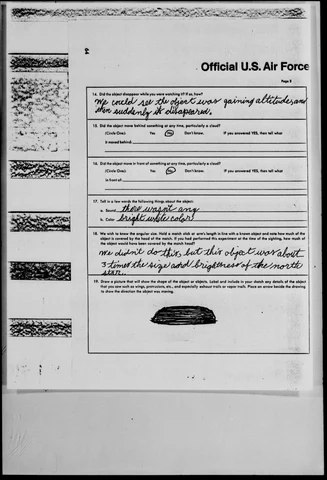 2
Official U.S. Air Force
Page 5
14. Did the object disappear while you were watching it? If so, how?
We could see the object was gaining altitude and
then suddenly it disappeared.
15. Did the object move behind something at any time, particularly a cloud?
(Circle One): Yes No Don't know. If you answered YES, then tell what
it moved behind:
16. Did the object move in front of something at any time, particularly a cloud?
(Circle One): Yes No Don't know. If you answered YES, then tell what
in front of:
17. Tell in a few words the following things about the object:
a. Sound there wasn't any
b. Color bright white color
18. We wish to know the angular size. Hold a match stick at arm's length in line with a known object and note how much of the
object is covered by the head of the match. If you had performed this experiment at the time of the sighting, how much of
the object would have been covered by the match head?
We didn't do this, but this object was about
3 times the size and brightness of the north
star.
19. Draw a picture that will show the shape of the object or objects. Label and include in your sketch any details of the object
that you saw such as wings, protrusions, etc., and especially exhaust trails or vapor trails. Place an arrow beside the drawing
to show the direction the object was moving.